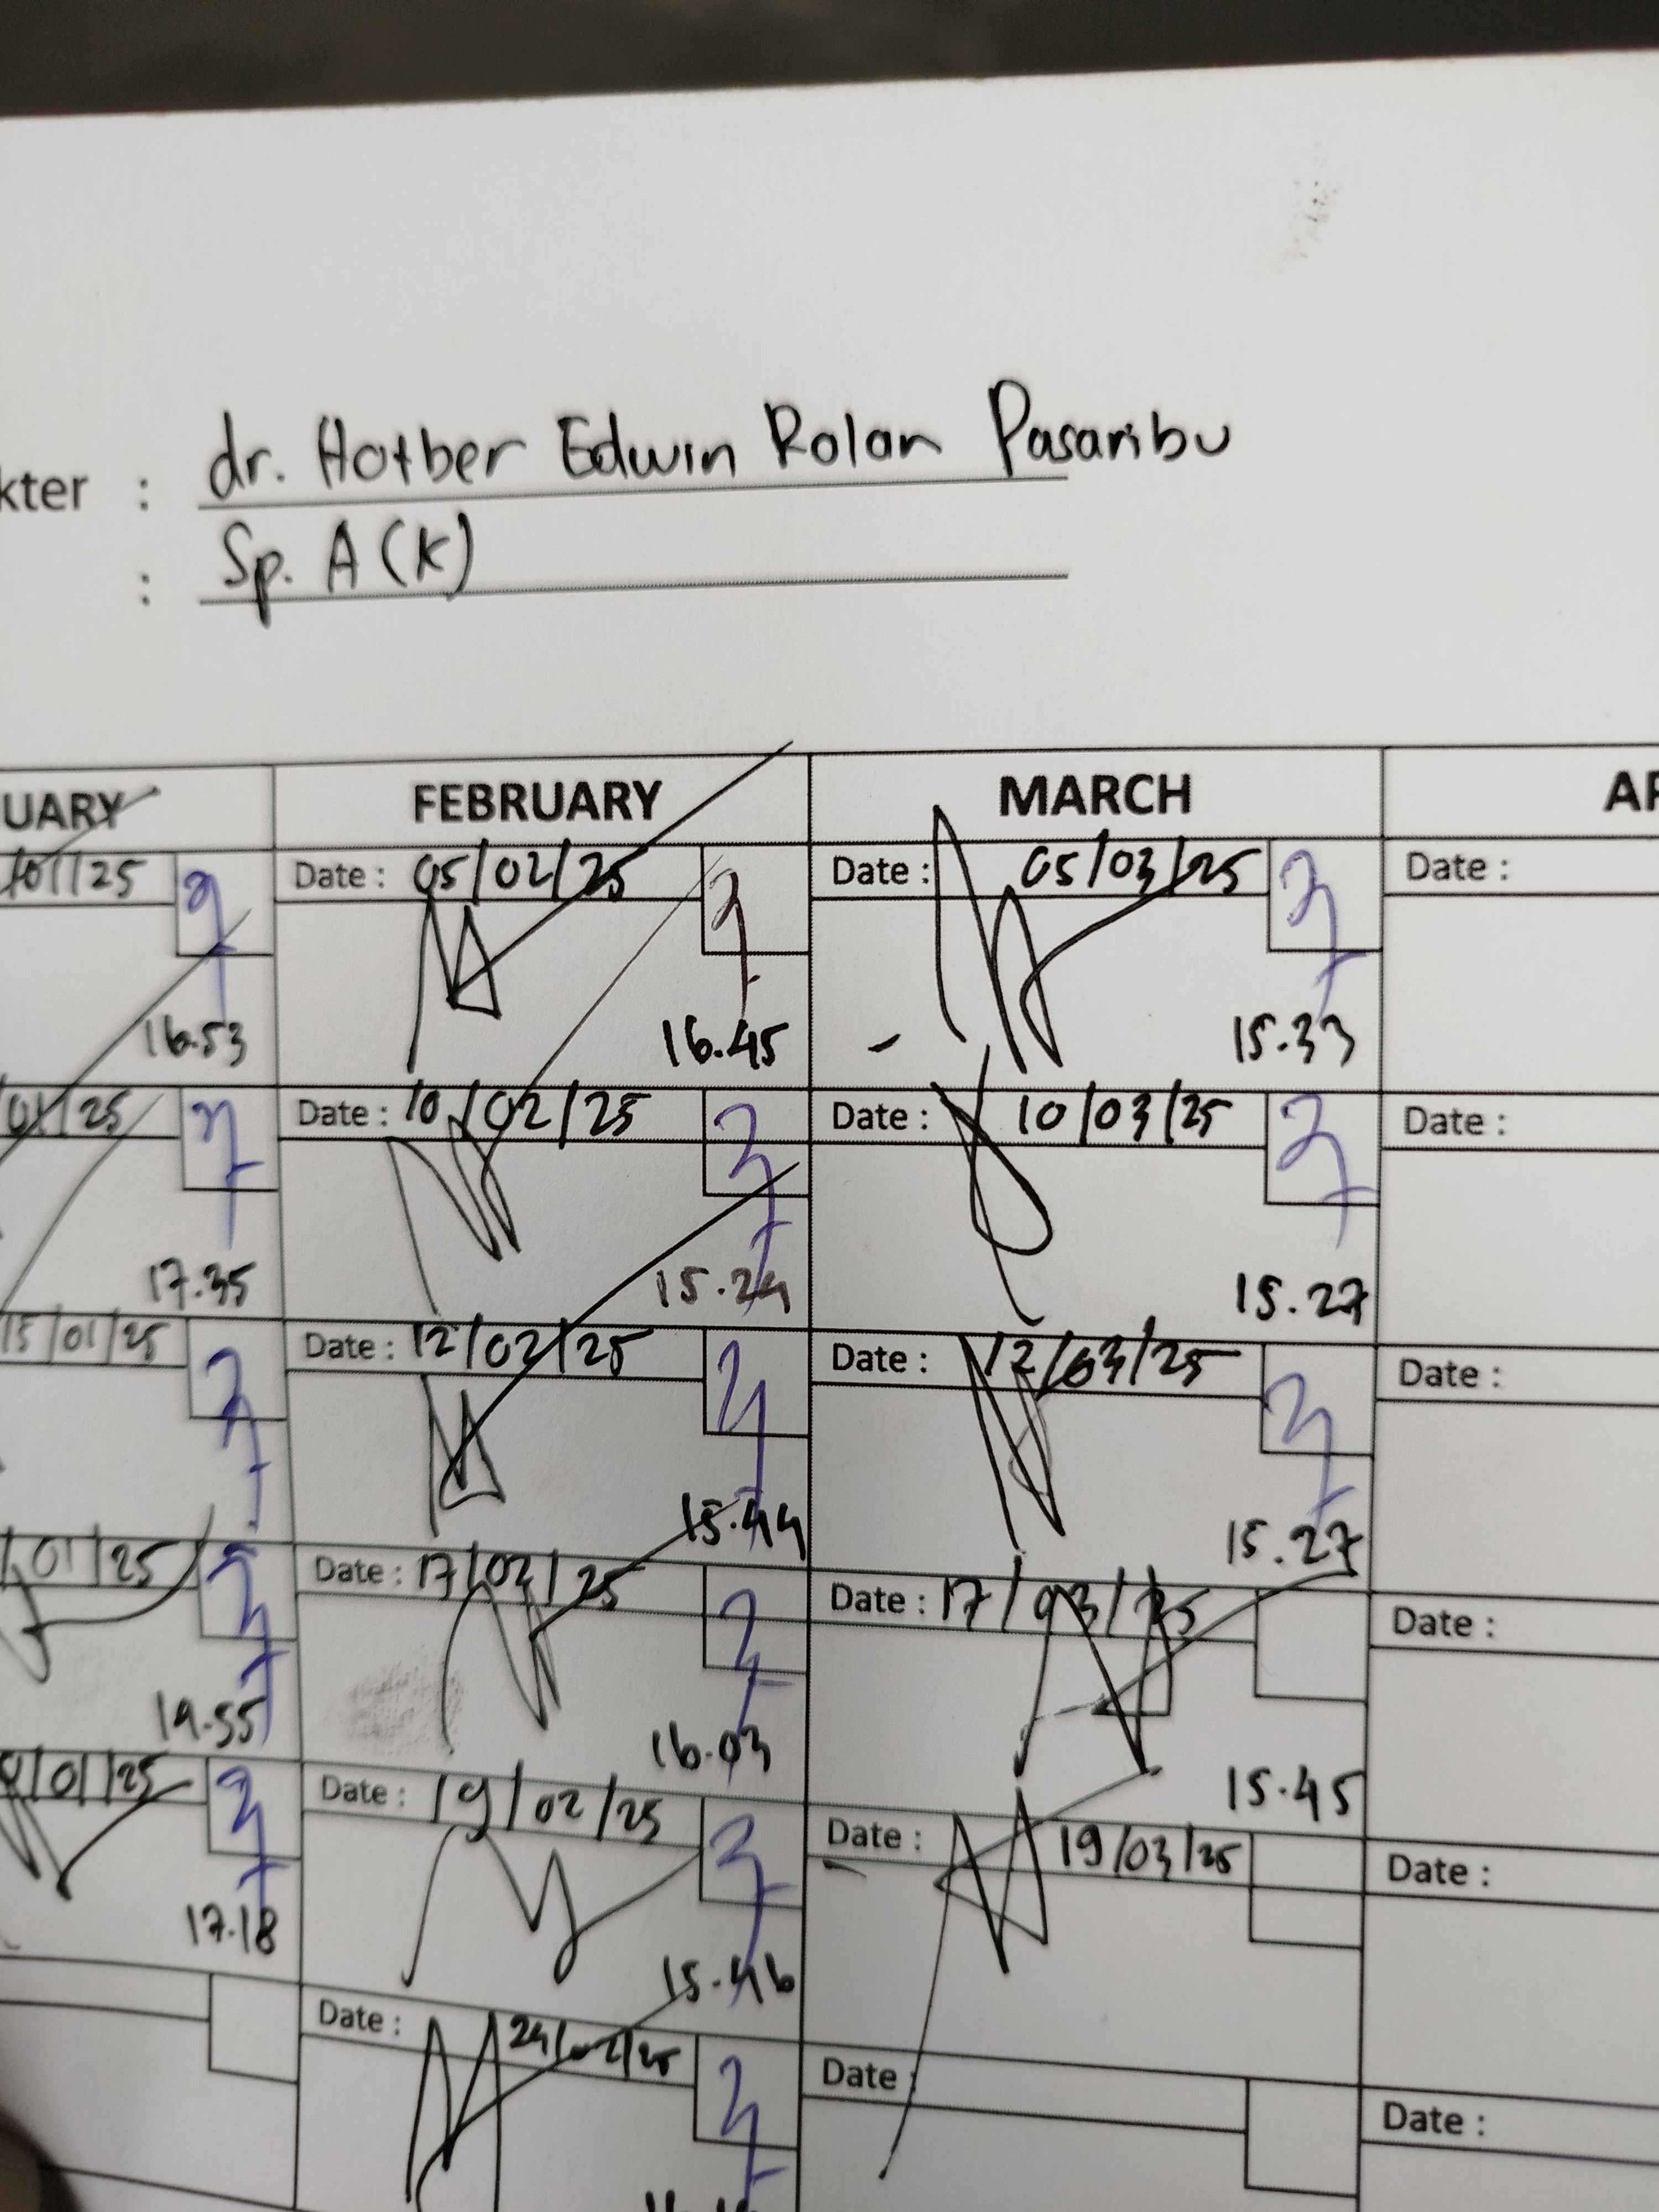 kter : dr. Hotber Edwin Rolan Pasaribu
: Sp. A (K)
UARY FEBRUARY MARCH
/01/25 Date : 05/02/25 Date : 05/03/25 Date :
16.53 16.45 15.33
01/25 Date : 10/02/25 Date : 10/03/25 Date :
17.35 15.24 15.27
15/01/25 Date : 12/02/25 Date : 12/03/25 Date :
15.44 15.27
/01/25 Date : 17/02/25 Date : 17/03/25 Date :
19.55 16.03 15.45
/01/25 Date : 19/02/25 Date : 19/03/25 Date :
17.18 15.46
Date : 24/02/25 Date : Date :